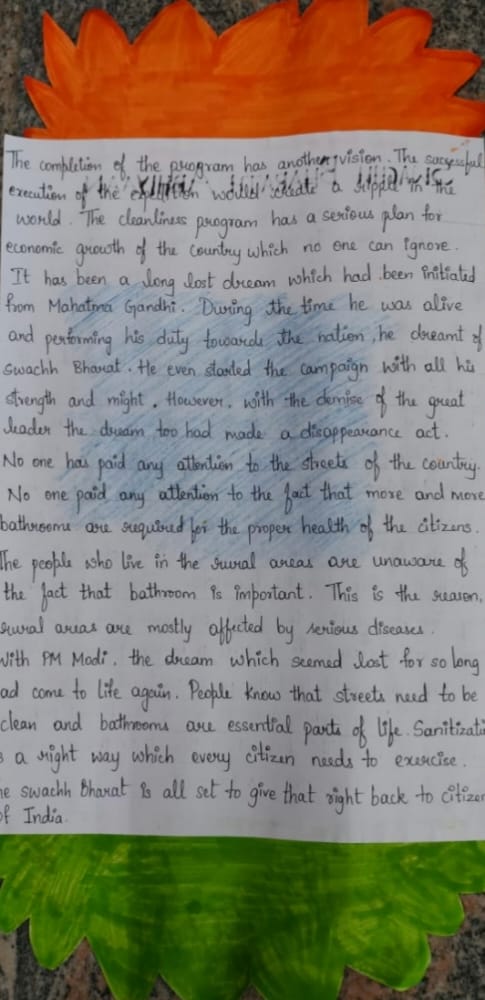 The completion of the program has another vision. The successful
execution of the would create a in the
world. The cleanliness program has a serious plan for
economic growth of the country which no one can ignore.
It has been a long lost dream which had been initiated
from Mahatma Gandhi. During the time he was alive
and performing his duty towards the nation, he dreamt of
Swachh Bharat. He even started the campaign with all his
strength and might. However, with the demise of the great
leader the dream too had made a disappearance act.
No one has paid any attention to the streets of the country.
No one paid any attention to the fact that more and more
bathrooms are required for the proper health of the citizens.
The people who live in the rural areas are unaware of
the fact that bathroom is important. This is the reason,
rural areas are mostly affected by serious diseases.
With PM Modi, the dream which seemed lost for so long
ad come to life again. People know that streets need to be
clean and bathrooms are essential parts of life. Sanitizati
s a right way which every citizen needs to exercise.
he swachh Bharat is all set to give that right back to citizen
of India.